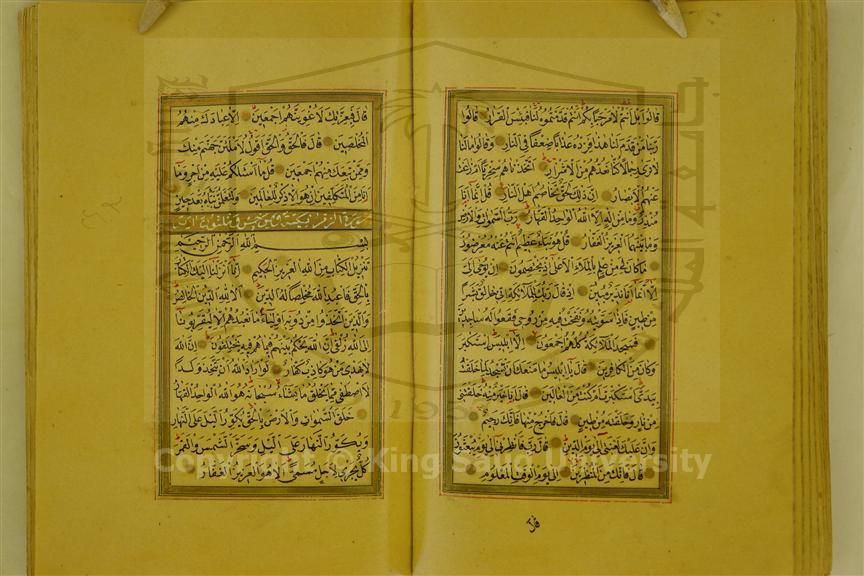 قالوا بل أنتم لا مرحبا بكم أنتم قدمتموه لنا فبئس القرار قالوا
ربنا من قدم لنا هذا فزده عذابا ضعفا في النار وقالوا ما لنا
لا نرى رجالا كنا نعدهم من الأشرار أتخذناهم سخريا أم زاغت
عنهم الأبصار إن ذلك لحق تخاصم أهل النار قل إنما أنا
منذر وما من إله إلا الله الواحد القهار رب السموات والأرض
وما بينهما العزيز الغفار قل هو نبأ عظيم أنتم عنه معرضون
ما كان لي من علم بالملإ الأعلى إذ يختصمون إن يوحى إلي
إلا أنما أنا نذير مبين إذ قال ربك للملائكة إني خالق بشرا
من طين فإذا سويته ونفخت فيه من روحي فقعوا له ساجدين
فسجد الملائكة كلهم أجمعون إلا إبليس استكبر
وكان من الكافرين قال يا إبليس ما منعك أن تسجد لما خلقت
بيدي أستكبرت أم كنت من العالين قال أنا خير منه خلقتني
من نار وخلقته من طين قال فاخرج منها فإنك رجيم
وإن عليك لعنتي إلى يوم الدين قال رب فأنظرني إلى يوم يبعثون
قال فإنك من المنظرين إلى يوم الوقت المعلوم
قال
قال فبعزتك لأغوينهم أجمعين إلا عبادك منهم
المخلصين قال فالحق والحق أقول لأملأن جهنم منك
وممن تبعك منهم أجمعين قل ما أسئلكم عليه من أجر وما
أنا من المتكلفين إن هو إلا ذكر للعالمين ولتعلمن نبأه بعد حين
سورة الزمر
بسم الله الرحمن الرحيم
تنزيل الكتاب من الله العزيز الحكيم إنا أنزلنا إليك الكتاب
بالحق فاعبد الله مخلصا له الدين ألا لله الدين الخالص
والذين اتخذوا من دونه أولياء ما نعبدهم إلا ليقربونا
إلى الله زلفى إن الله يحكم بينهم فيما هم فيه يختلفون إن الله
لا يهدي من هو كاذب كفار لو أراد الله أن يتخذ ولدا
لاصطفى مما يخلق ما يشاء سبحانه هو الله الواحد القهار
خلق السموات والأرض بالحق يكور الليل على النهار
ويكور النهار على الليل وسخر الشمس والقمر
كل يجري لأجل مسمى ألا هو العزيز الغفار
Copyright © King Saud University